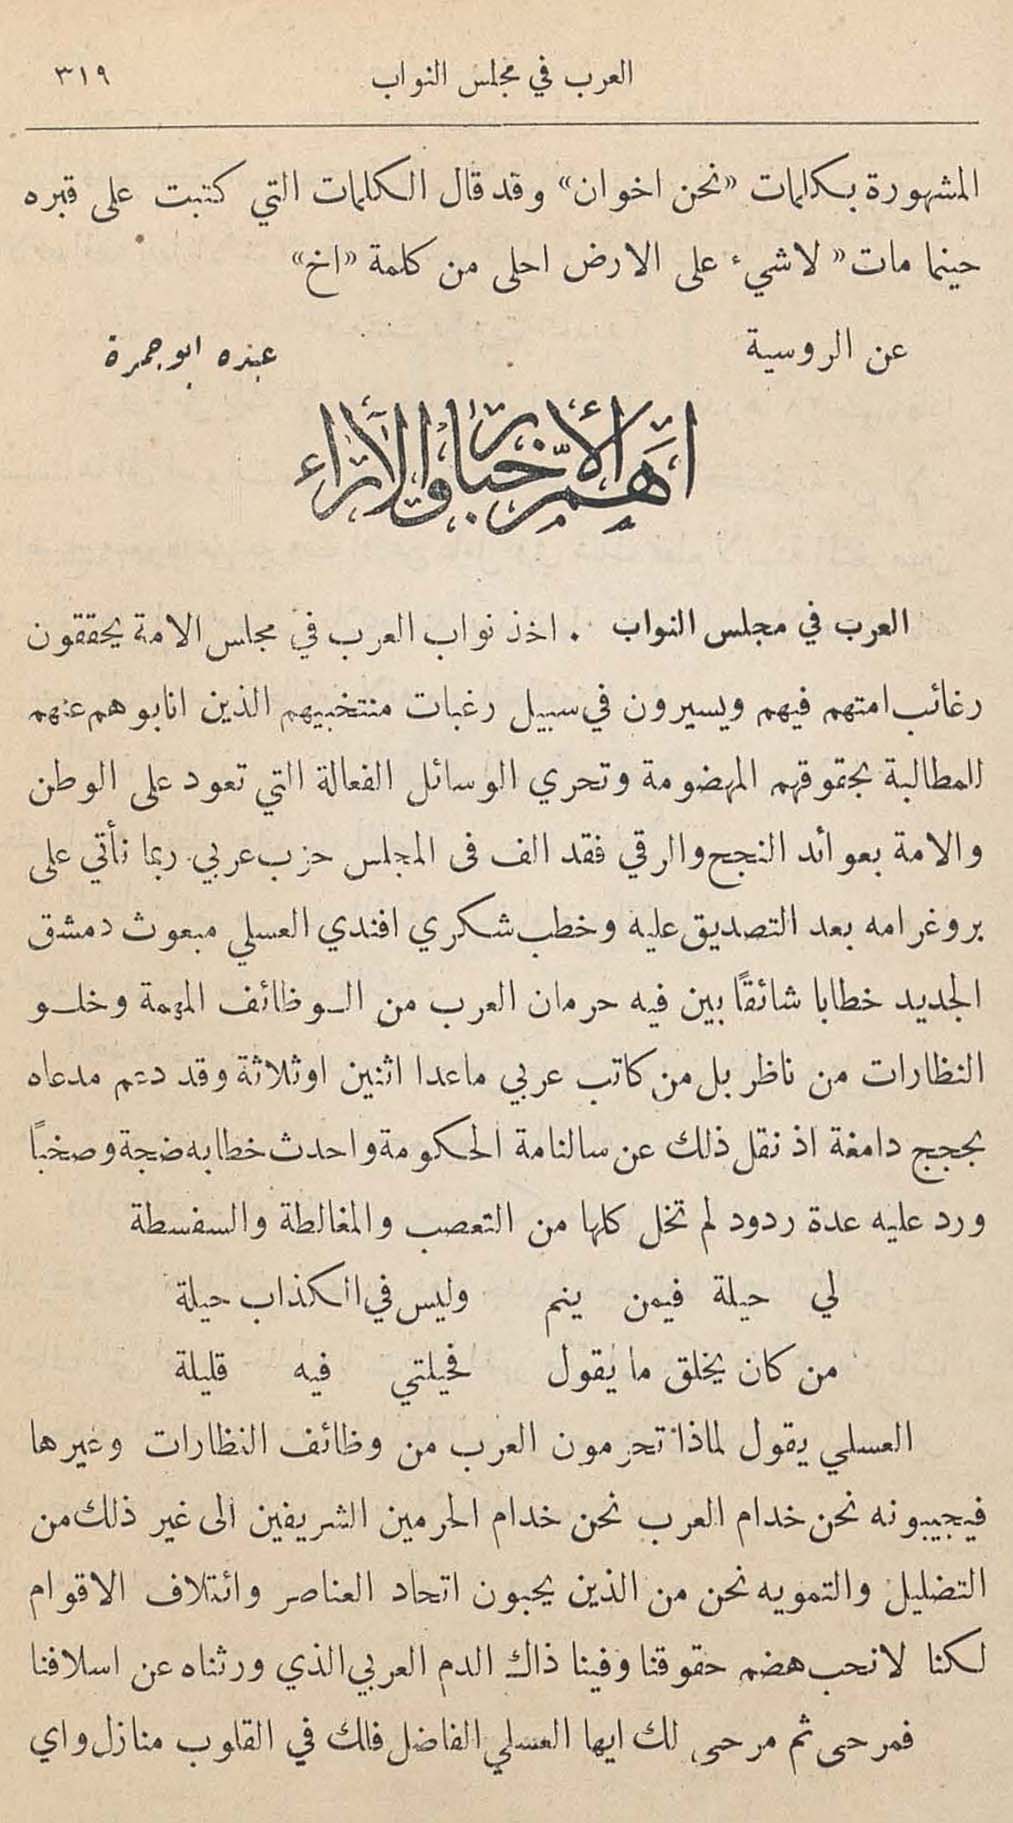 العرب في مجلس النواب ٣١٩
المشهورة بكلمات «نحن اخوان» وقد قال الكلمات التي كتبت على قبره
حينما مات « لاشيء على الارض احلى من كلمة «اخ»
عن الروسية عبده ابو جمرة
اهم الأخبار والآراء
العرب في مجلس النواب . اخذ نواب العرب في مجلس الامة يحققون
رغائب امتهم فيهم ويسيرون في سبيل رغبات منتخبيهم الذين انابوهم عنهم
للمطالبة بحقوقهم المهضومة وتحري الوسائل الفعالة التي تعود على الوطن
والامة بعوائد النجح والرقي فقد الف فى المجلس حزب عربي ربما نأتي على
بروغرامه بعد التصديق عليه وخطب شكري افندي العسلي مبعوث دمشق
الجديد خطابا شائقاً بين فيه حرمان العرب من الوظائف المهمة وخلو
النظارات من ناظر بل من كاتب عربي ماعدا اثنين اوثلاثة وقد دعم مدعاه
بحجج دامغة اذ نقل ذلك عن سالنامة الحكومة واحدث خطابه ضجة وصخباً
ورد عليه عدة ردود لم تخل كلها من التعصب والمغالطة والسفسطة
لي حيلة فيمن ينم وليس في الكذاب حيلة
من كان يخلق ما يقول فحيلتي فيه قليلة
العسلي يقول لماذا تحرمون العرب من وظائف النظارات وغيرها
فيجيبونه نحن خدام العرب نحن خدام الحرمين الشريفين الى غير ذلك من
التضليل والتمويه نحن من الذين يحبون اتحاد العناصر وائتلاف الاقوام
لكنا لانحب هضم حقوقنا وفينا ذاك الدم العربي الذي ورثناه عن اسلافنا
فمرحى ثم مرحى لك ايها العسلي الفاضل فلك في القلوب منازل واي